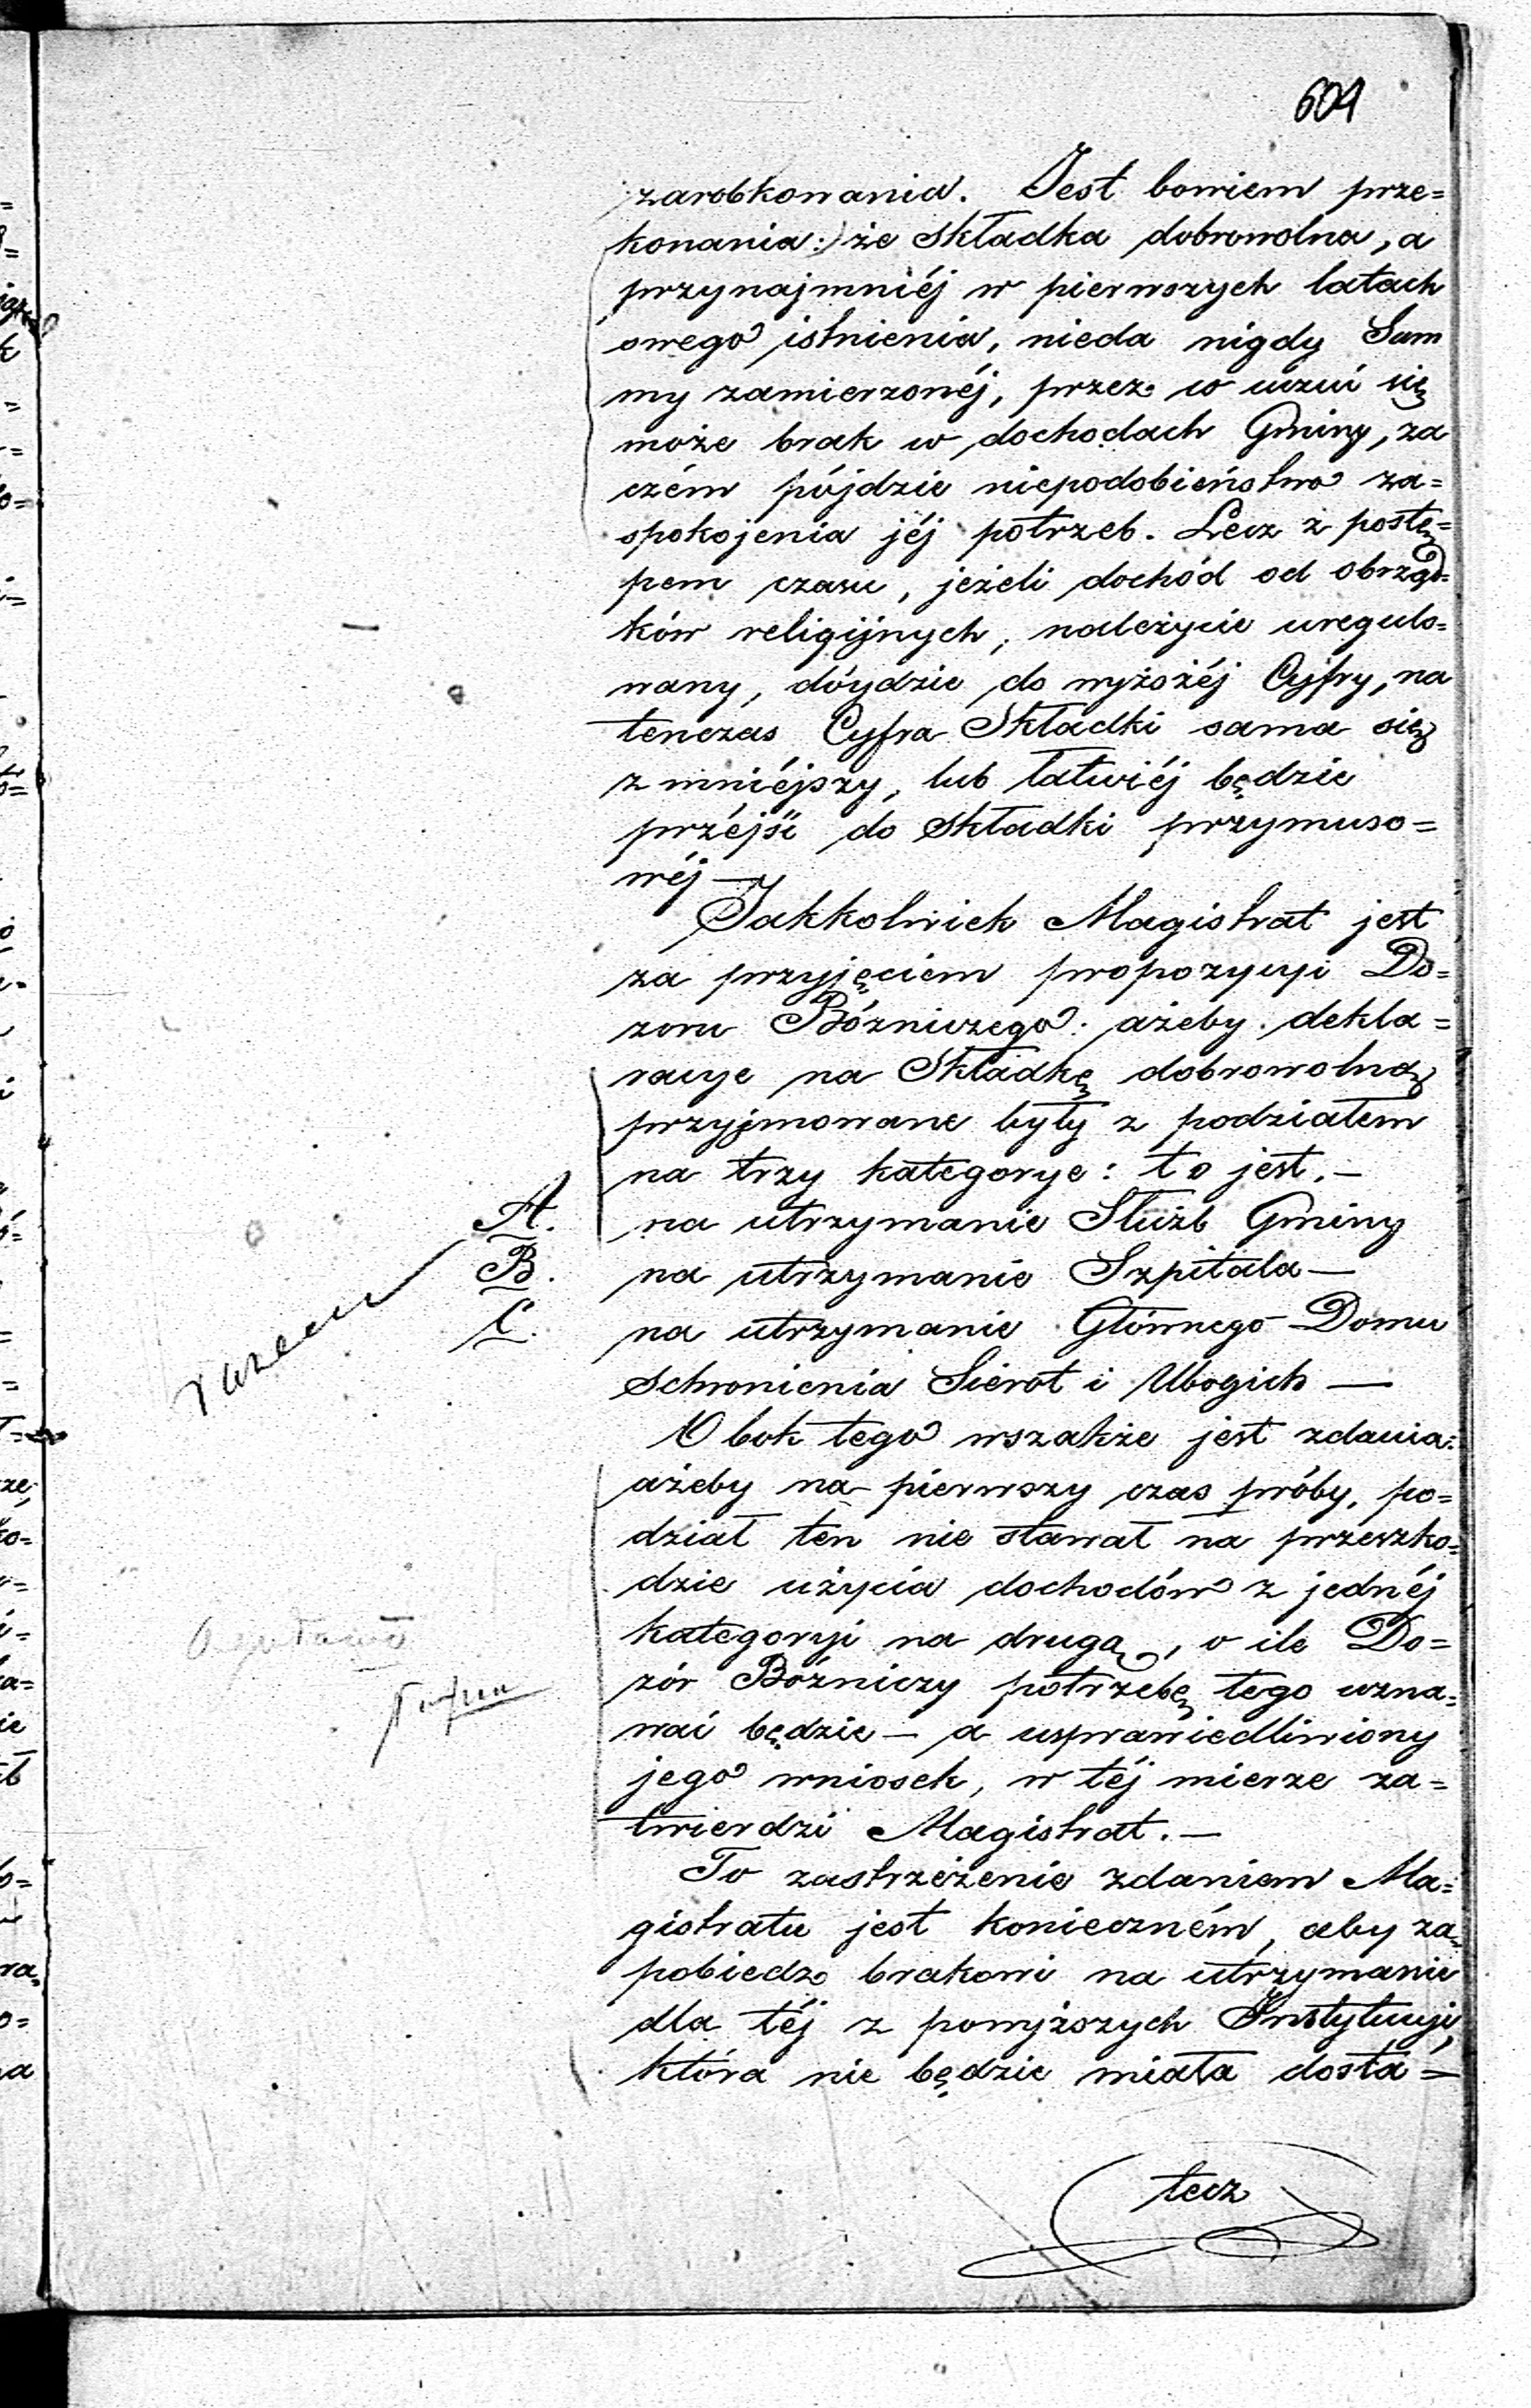 601
zarobkowania. Jest bowiem prze=
konania:) że Składka dobrowolna, a
przynajmniéj w pierwszych latach
swego istnienia, nieda nigdy Sum
my zamierzonéj, przez co uczuć się
może brak w dochodach Gminy, za
czém pójdzie niepodobieństwo za=
spokojenia jéj potrzeb. Lecz z postę=
pem czasu, jeżeli dochód od obrząd=
ków religijnych, należycie uregulo=
wany, dójdzie do wyższéj Cyfry, na
tenczas Cyfra Składki sama się
zmniéjszy, lub łatwiéj będzie
przéjść do Składki przymuso=
wéj —
Jakkolwiek Magistrat jest
za przyjęciem propozycyi Do=
zoru Bóżniczego: ażeby dekla=
racye na Składkę dobrowolną
przyjmowane były z podziałem
na trzy kategorye: to jest. —
A. na utrzymanie Służb Gminy
B. na utrzymanie Szpitala —
C. na utrzymanie Głównego Domu
Schronienia Sierot i Ubogich —
razem
Obok tego wszakże jest zdania:
ażeby na pierwszy czas próby, po=
dział ten nie stawał na przeszko=
dzie użycia dochodów z jednéj
kategoryi na drugą, o ile Do=
zór Bóżniczy potrzebę tego uzna=
wać będzie — a usprawiedliwiony
jego wniosek, w téj mierze za=
twierdzi Magistrat. —
To zastrzeżenie zdaniem Ma=
gistratu jest konieczném, aby za=
pobiedz brakowi na utrzymanie
dla téj z powyższych Instytucyi,
która nie będzie miała dosta=
tecz